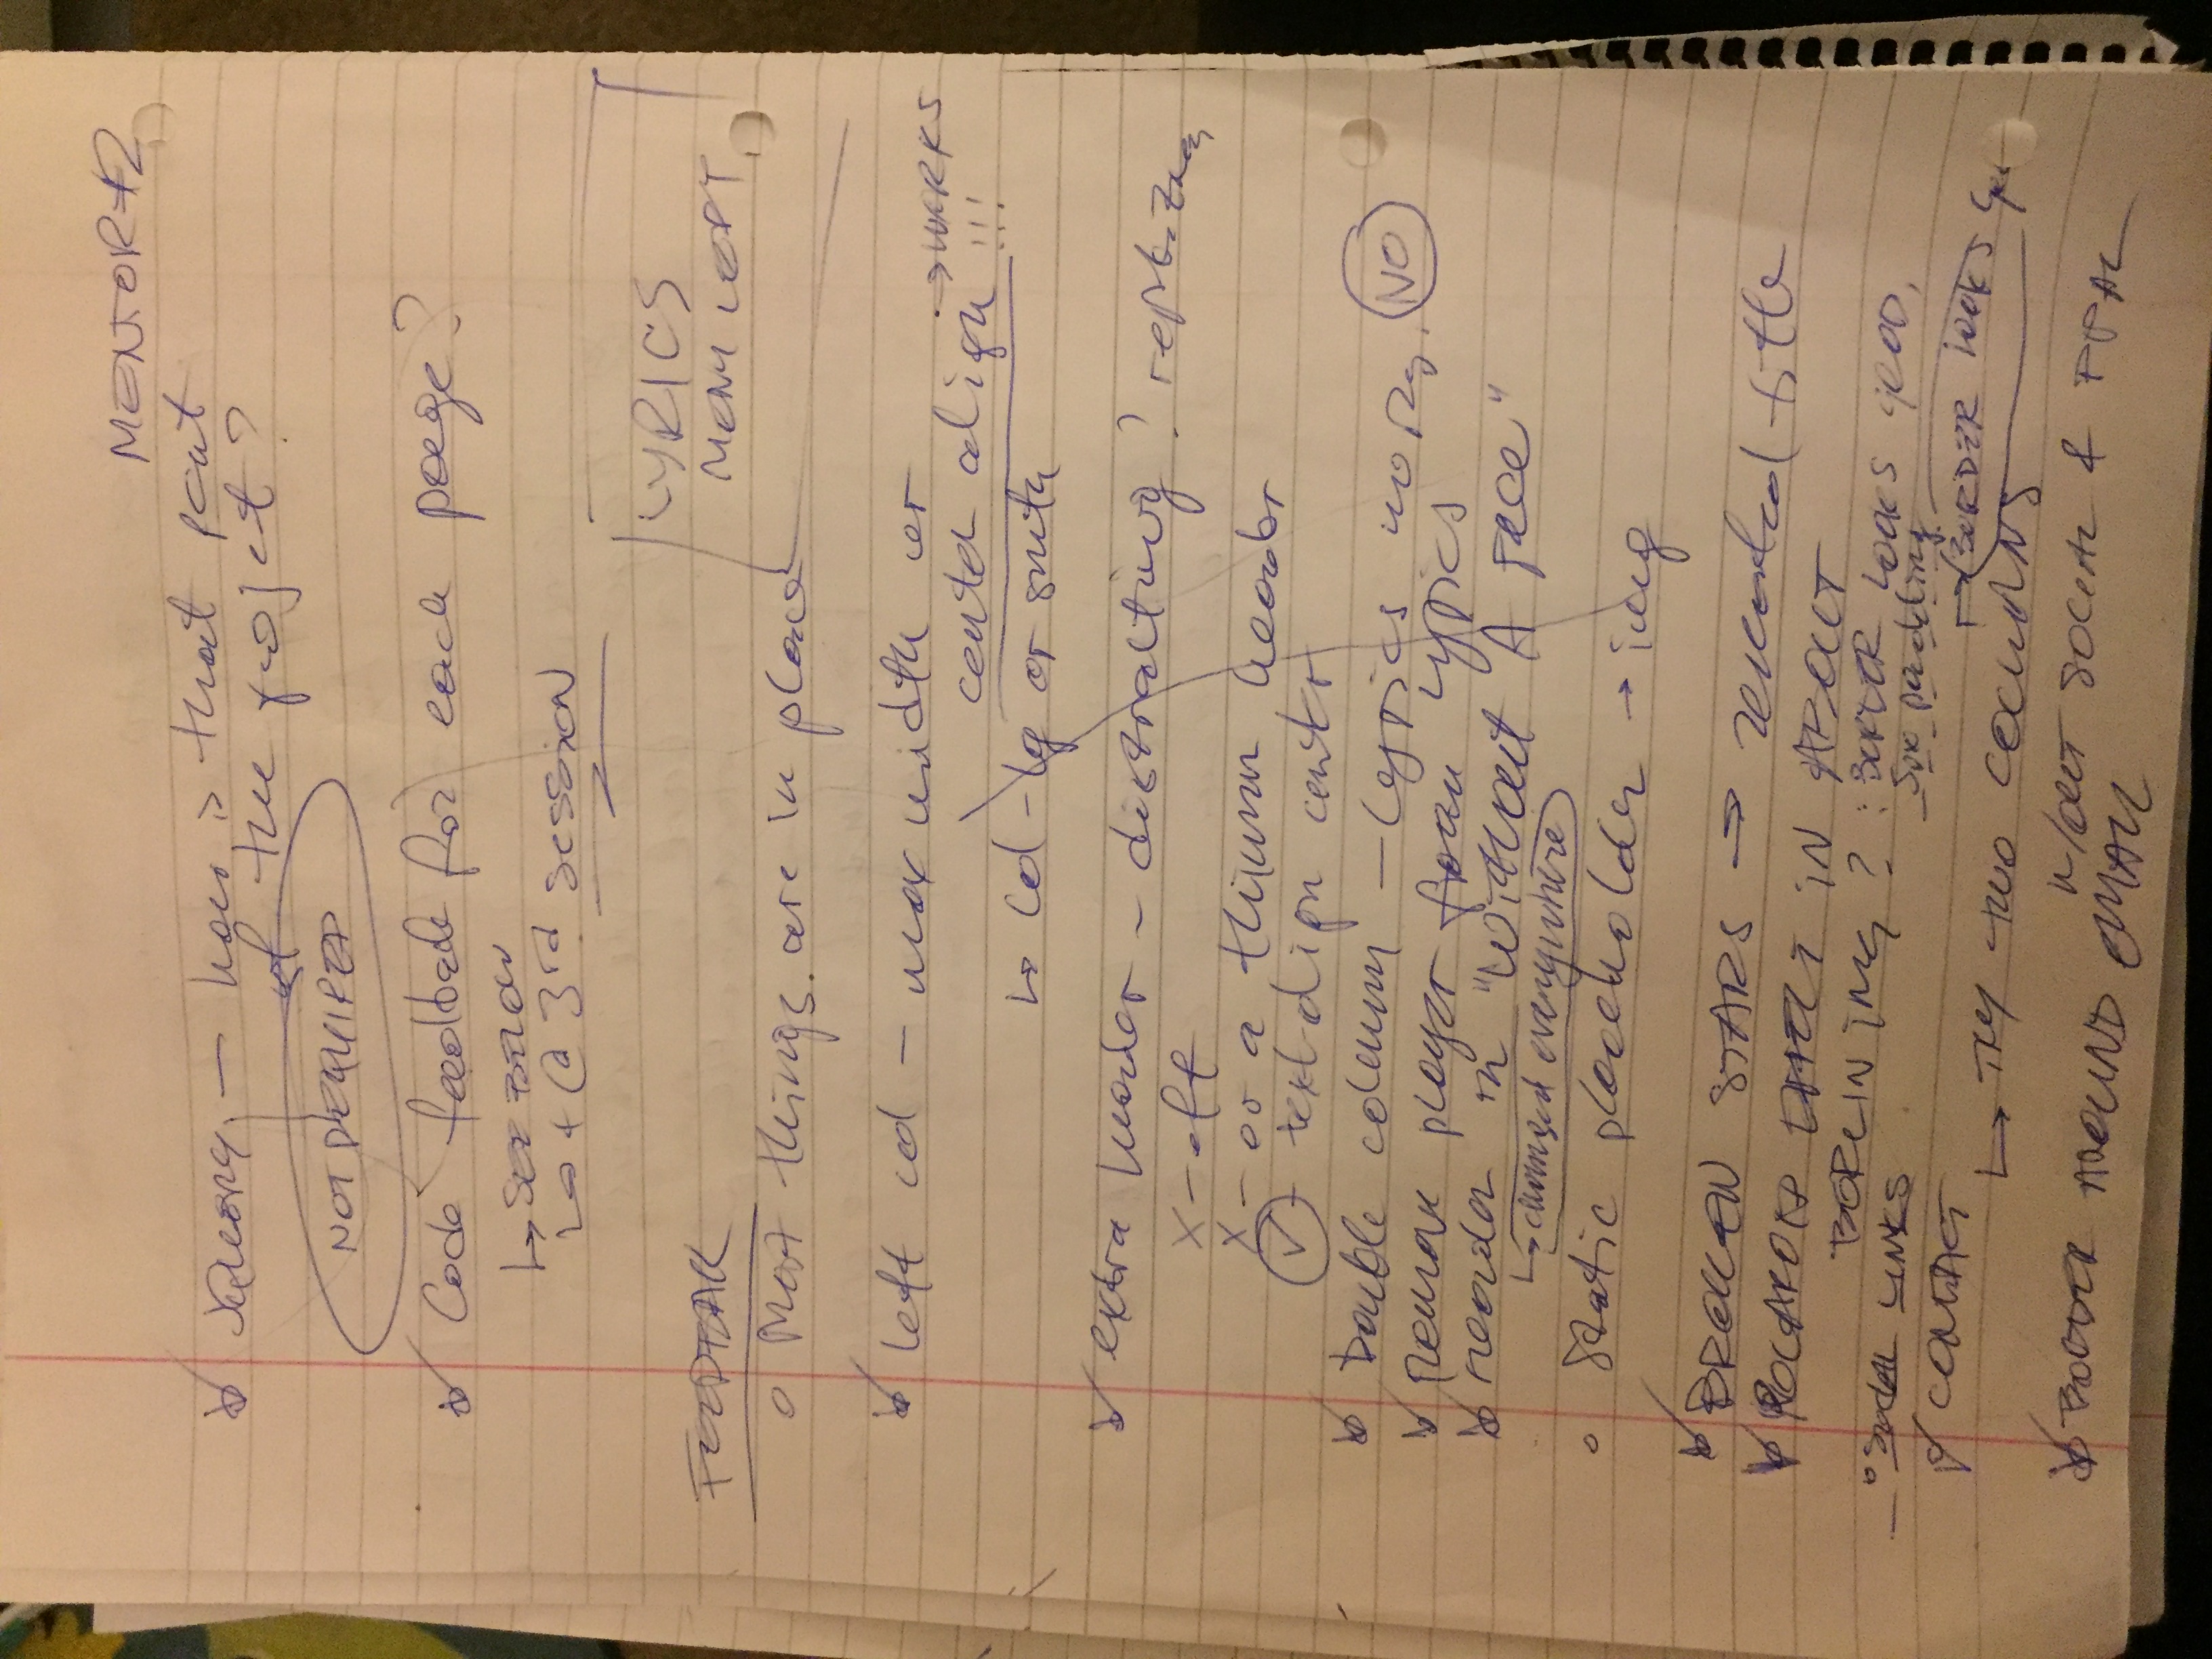 MENTOR #2
✓ JQuery — how is that part
of the project?
NOT REQUIRED
✓ Code feedback for each page?
↳ SEE BELOW
↳ + @ 3rd SESSION
LYRICS
MENU LEFT
FEEDBAK
o Most things are in place
✓ left col – max width or
center align → WORKS !!!
↳ Col-lg or smth
✓ extra header – distracting?
X – off
X – or a thinner header
✓ – text-align center
✓ Double column – Lyrics NO
✓ Remove player from Lyrics
✓ header in "Without A Face"
↳ changed everywhere
o Static placeholder → img
✓ BROKEN STARS → repeated title
✓ POLAROID EFFECT IN ABOUT
BERLIN IMG? : BORDER LOOKS GOOD,
o social LINKS
5px padding
✓ CONTACT
→ BORDER looks
↳ TRY TWO COLUMNS
✓ BORDER AROUND EMAIL
w/OUT SOCIAL & PPAL